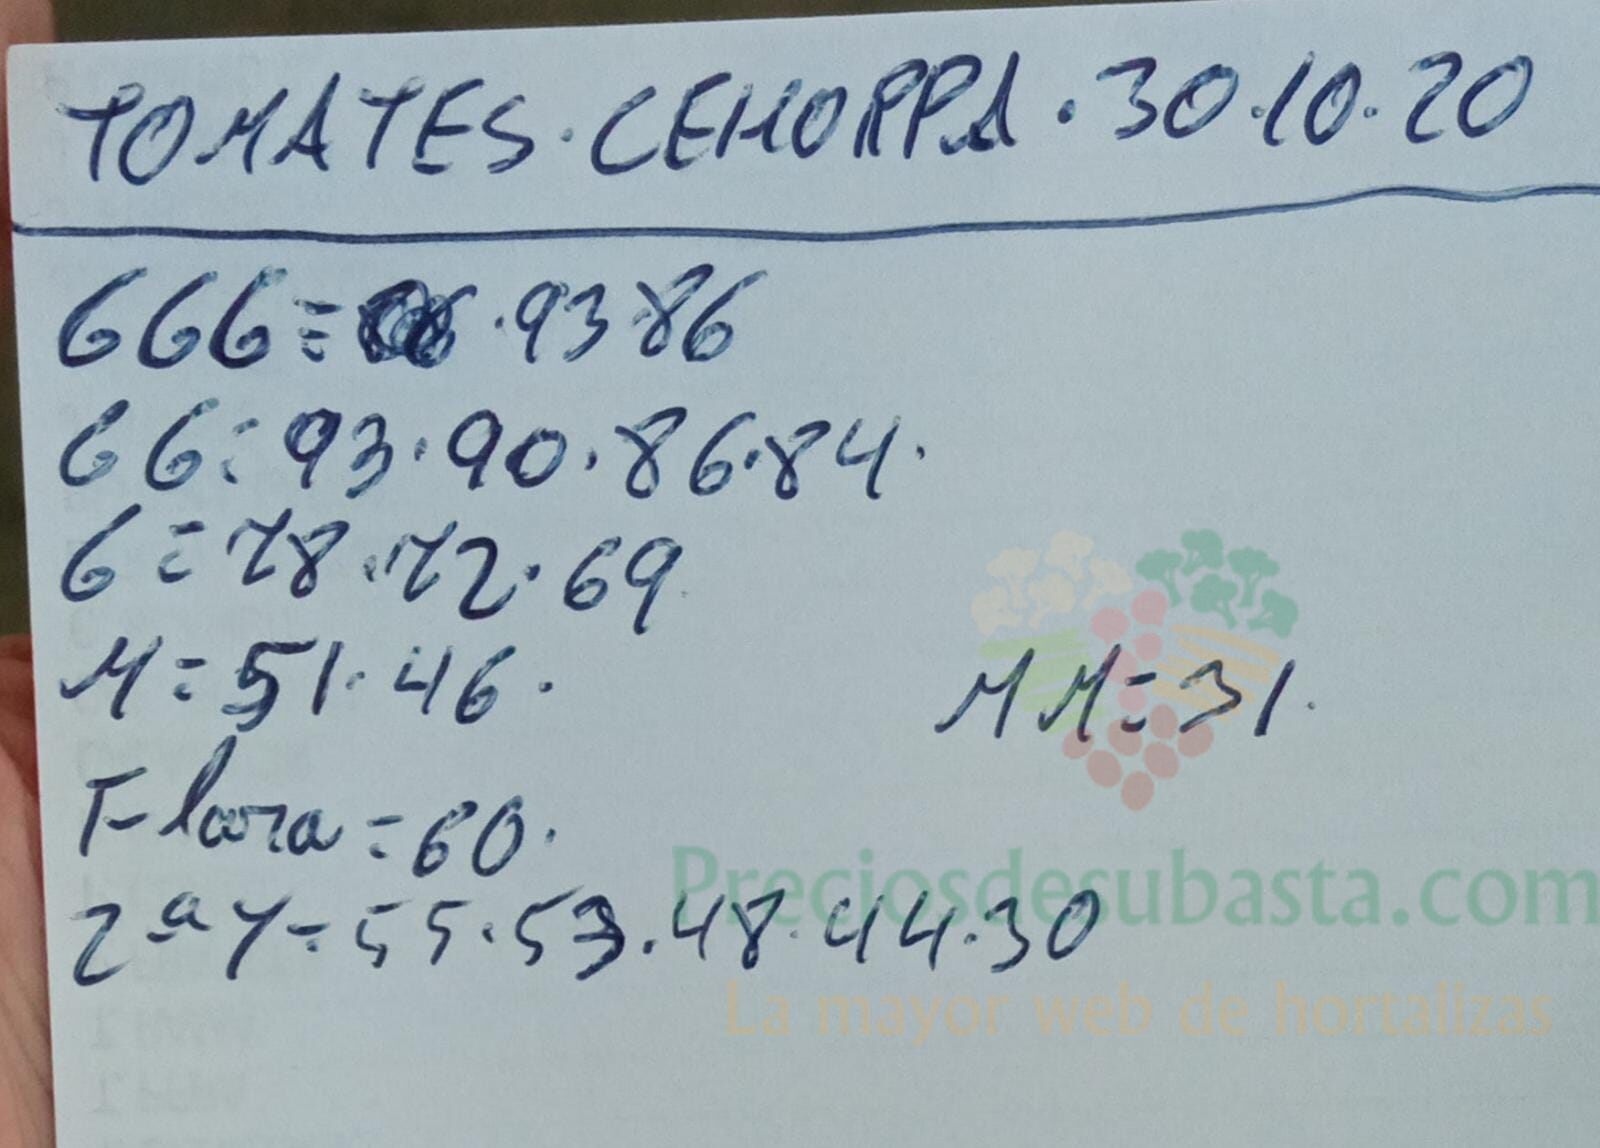 TOMATES·CEHORPA·30·10·20
GGG=·93·86
GG=93·90·86·84.
G=78·72·69
M=51·46. MM=31.
Flora=60.
2ªY=55·53·48·44·30
Preciosdesubasta.com
La mayor web de hortalizas